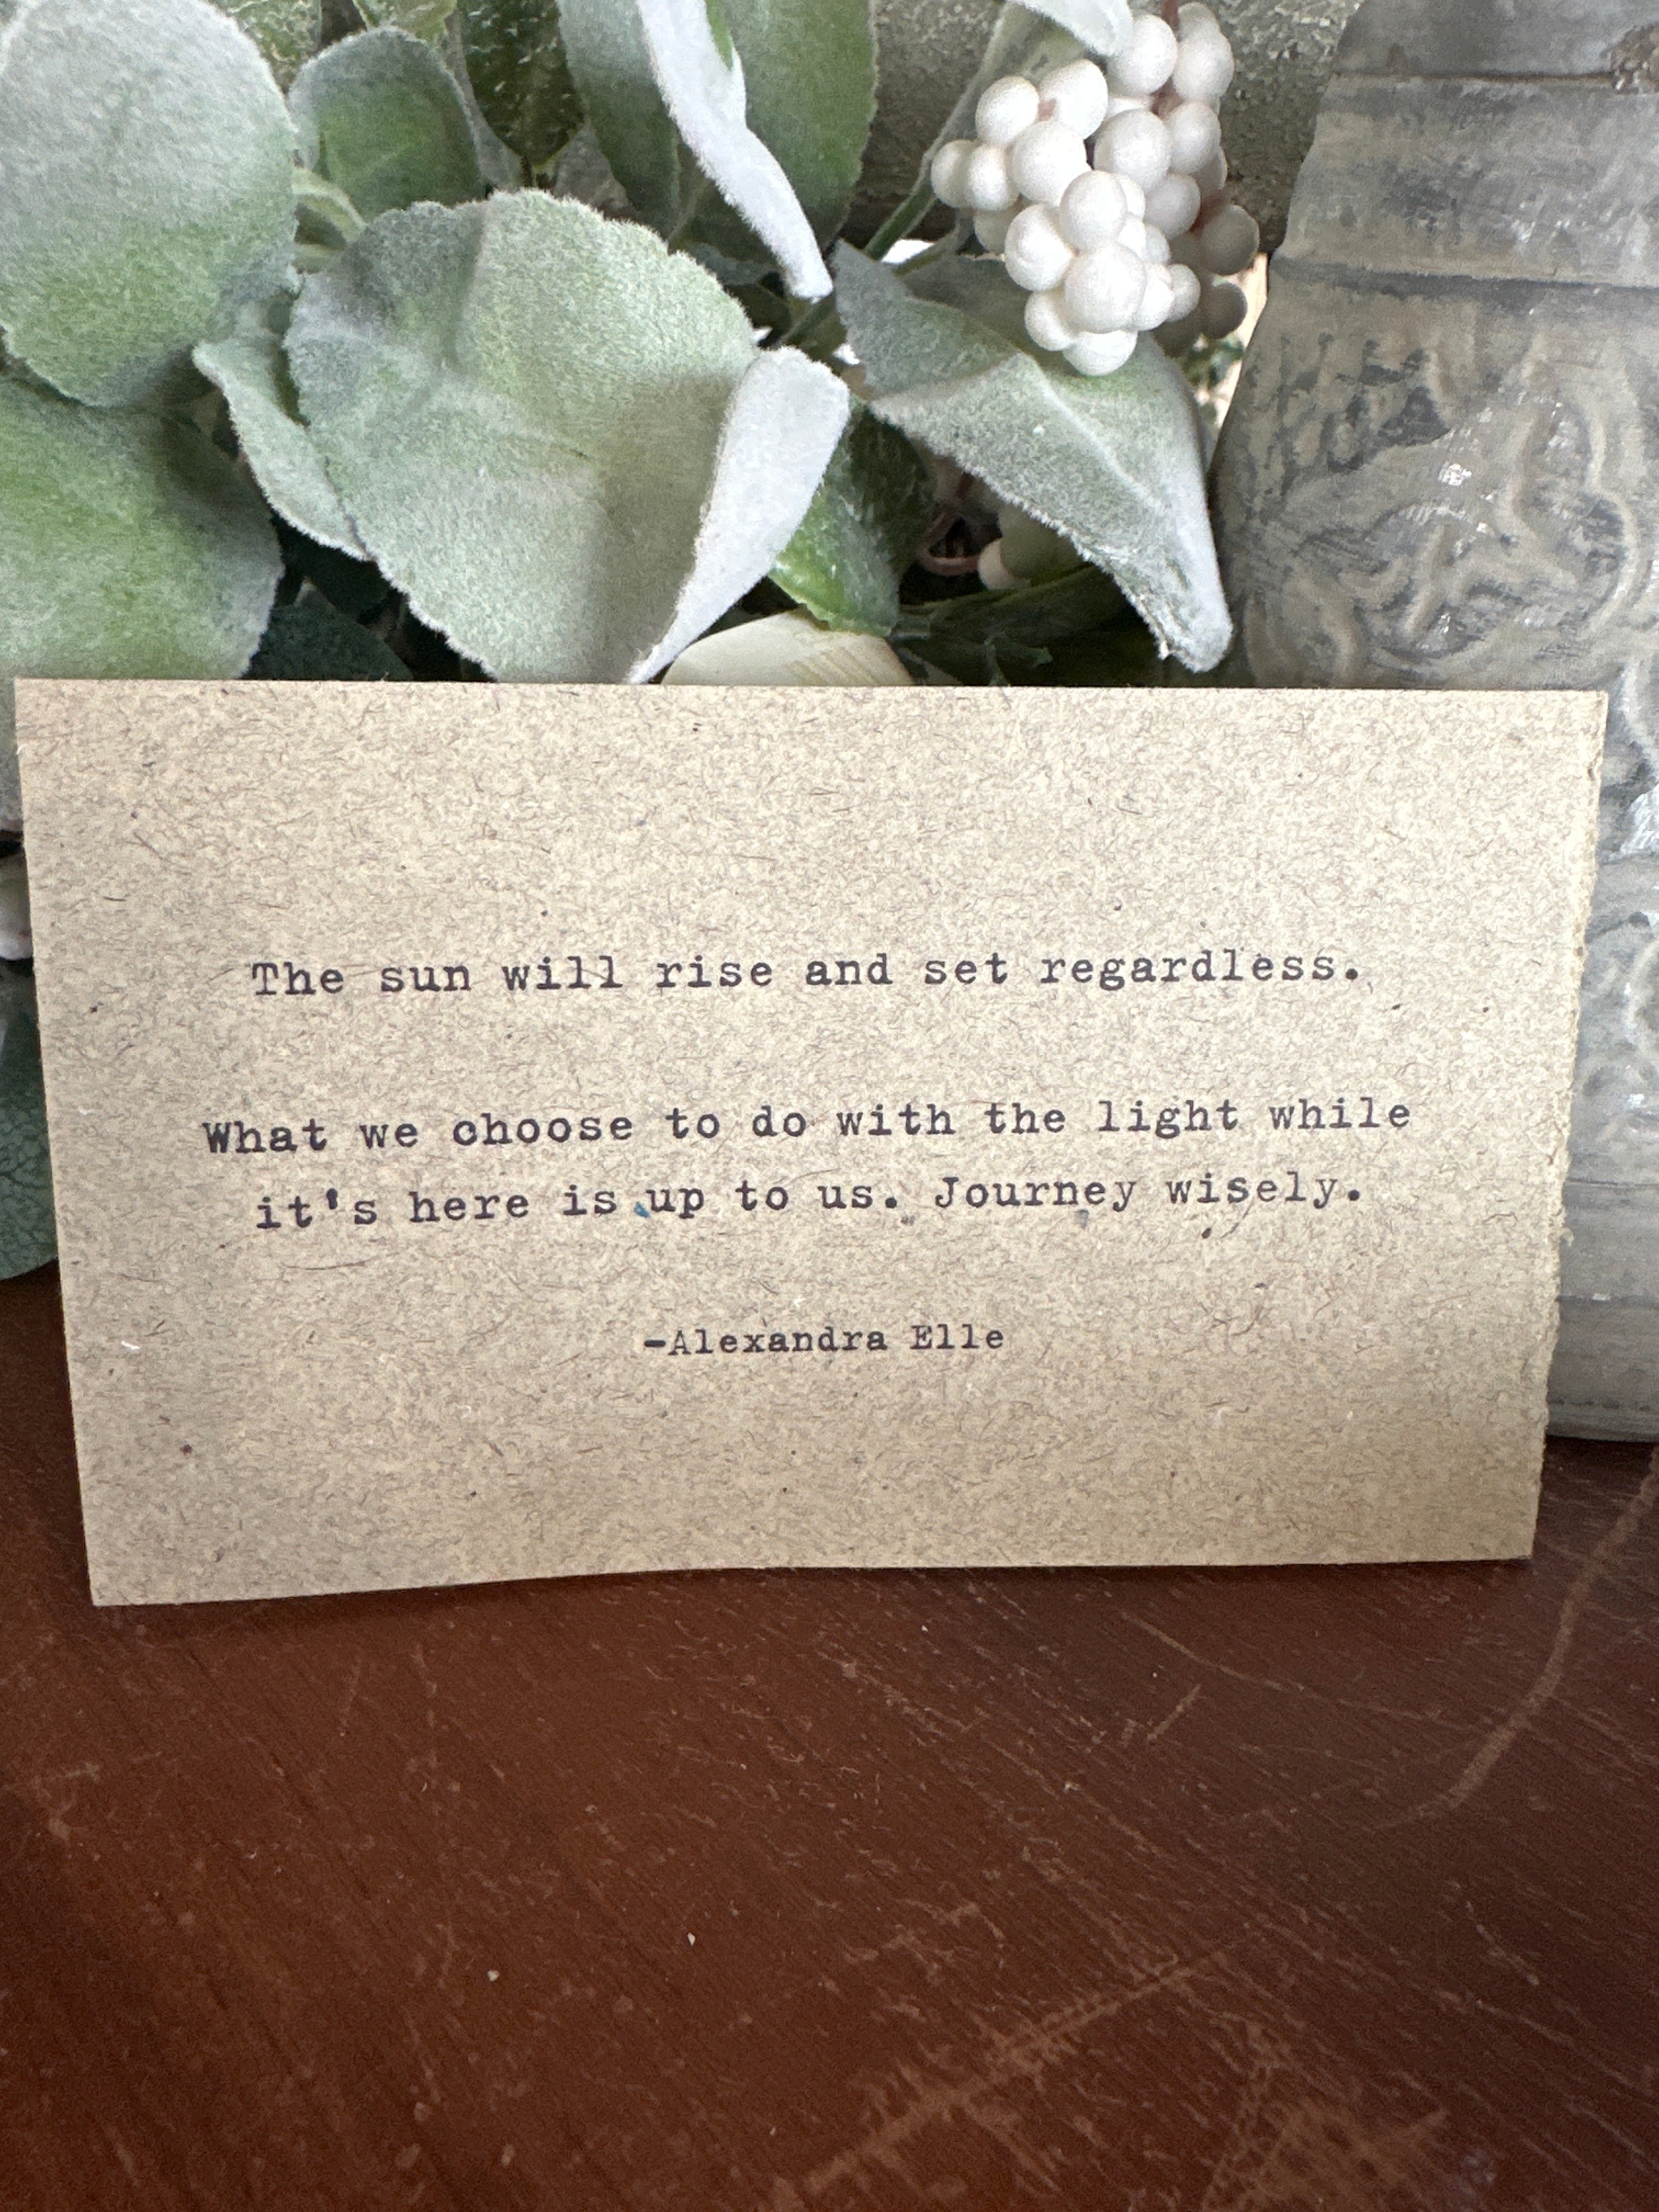 The sun will rise and set regardless.
What we choose to do with the light while
it's here is up to us. Journey wisely.
-Alexandra Elle